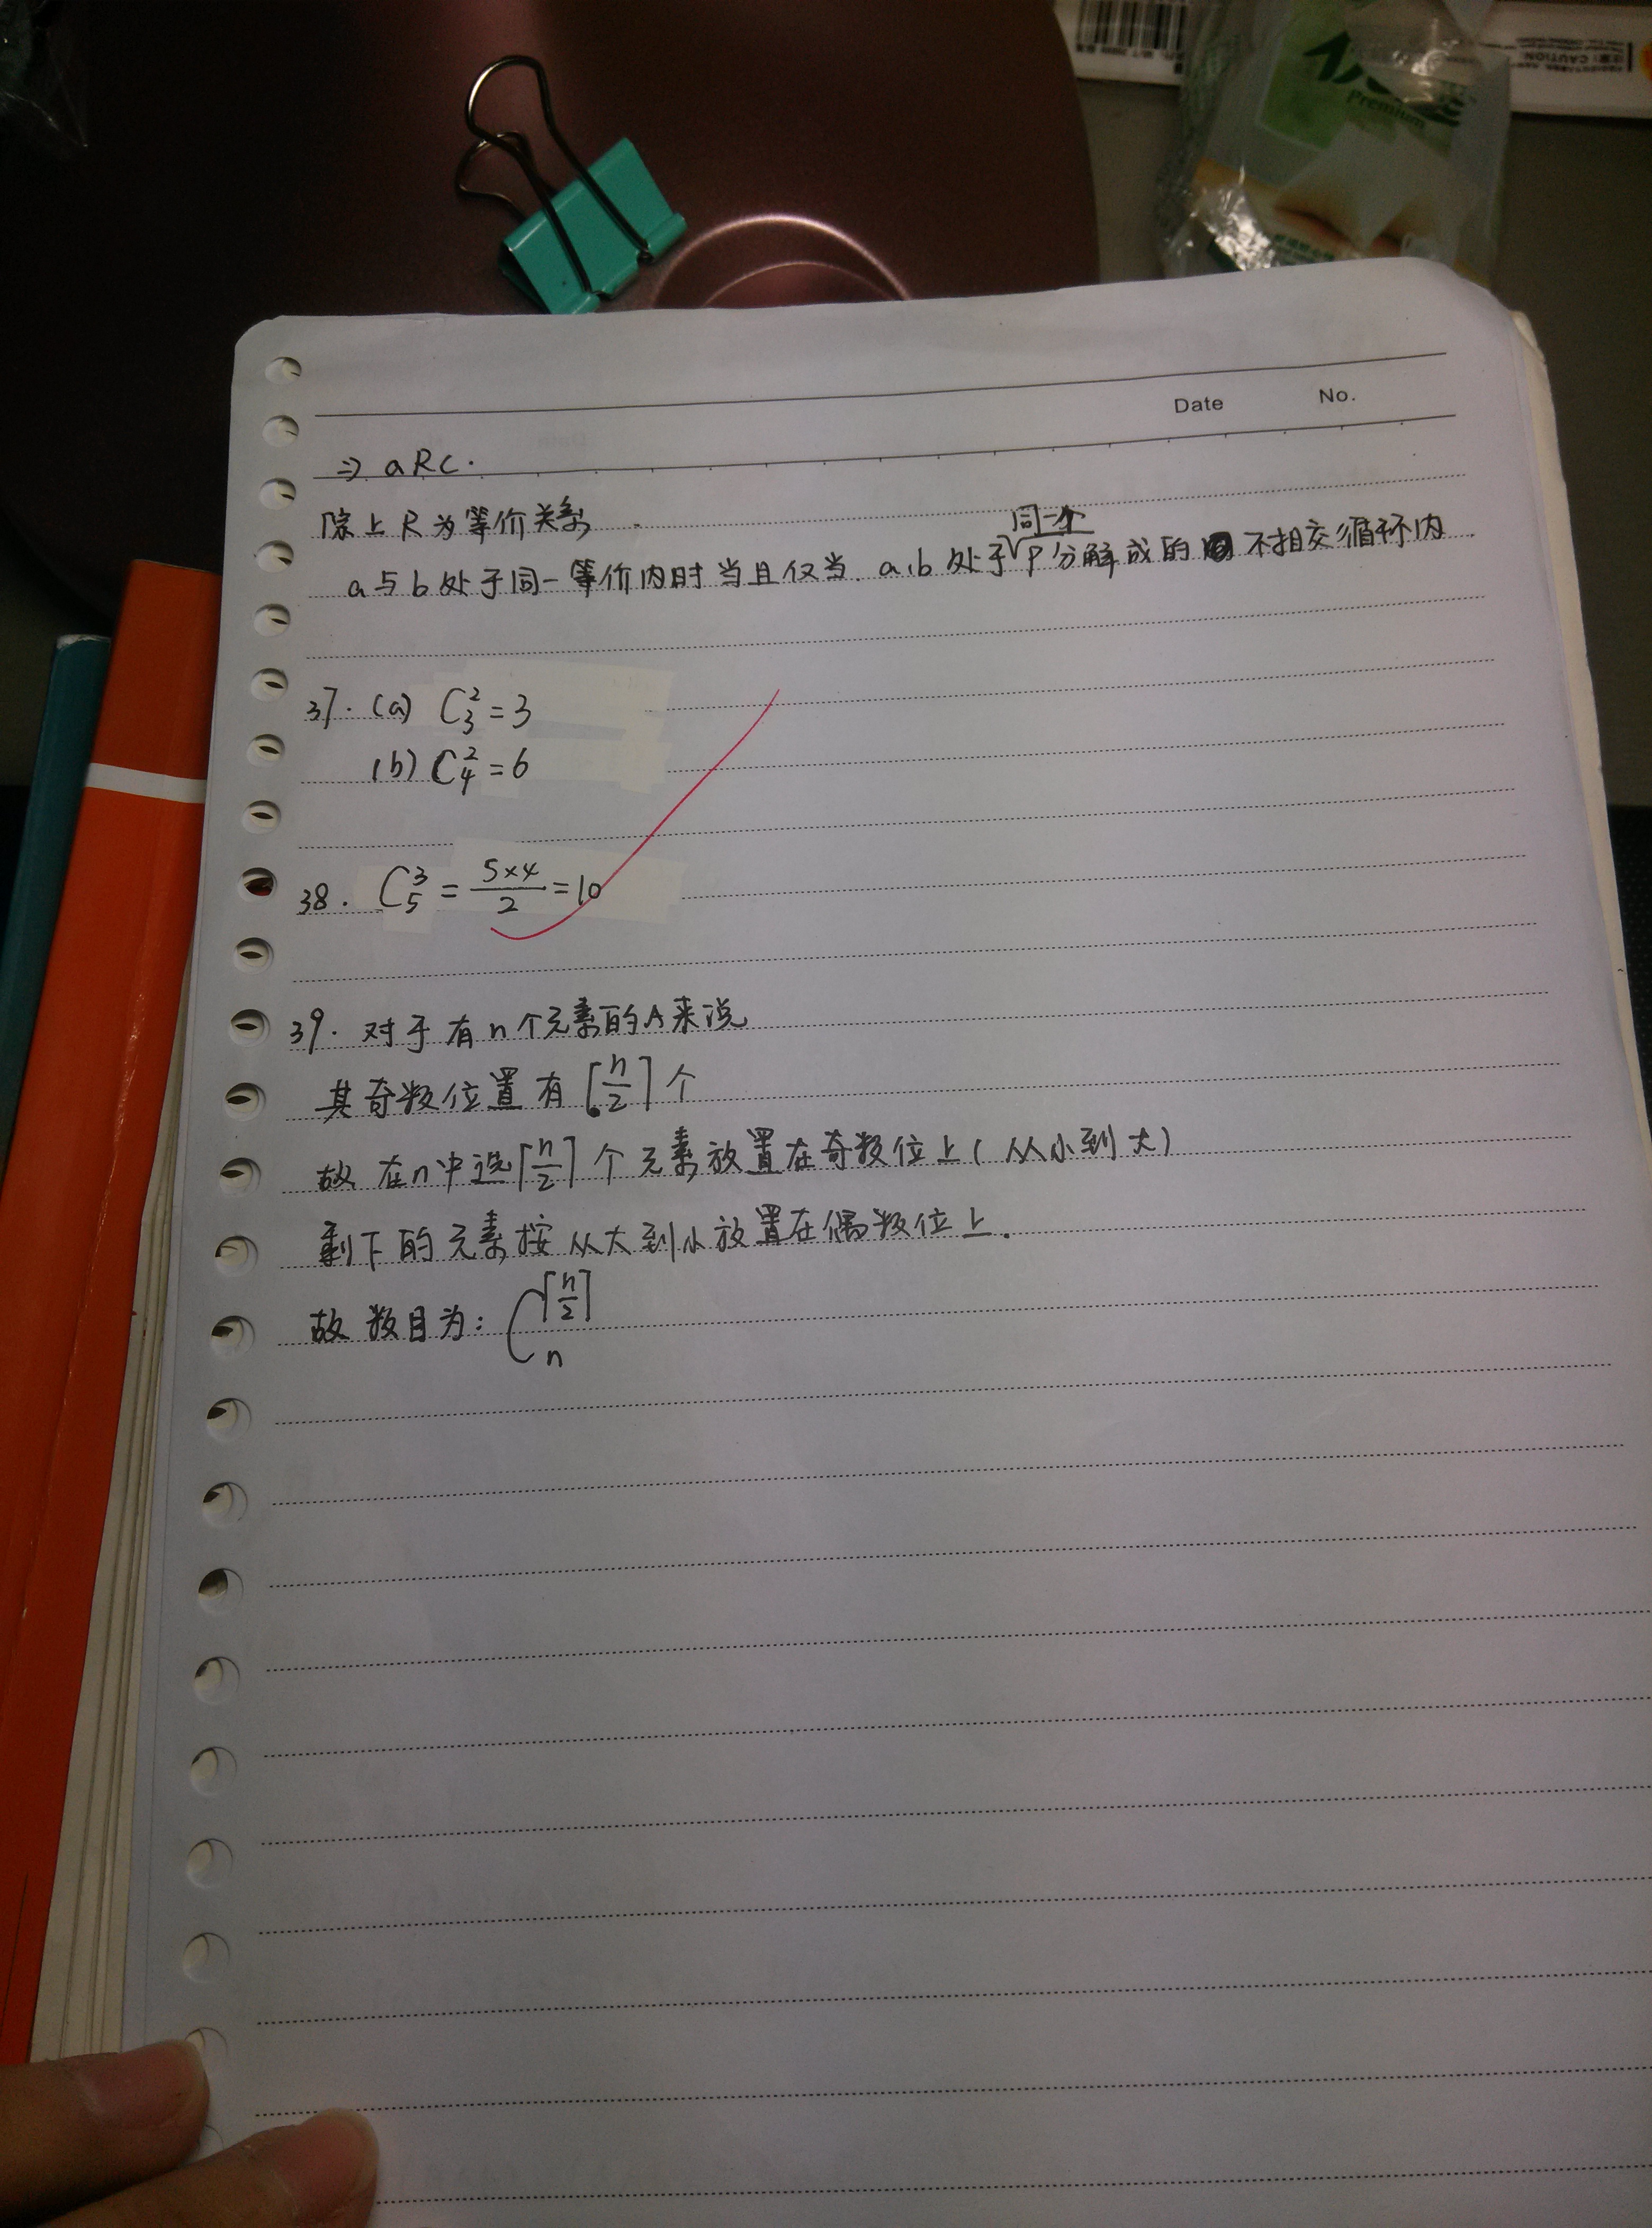 Premium
注意: CAUTION
Date No.
⇒ aRc.
综上 R 为等价关系
同一个
a与b处于同一等价内时当且仅当 a,b处于√P分解成的 不相交循环内
37. (a) C₃² = 3
(b) C₄² = 6
38. C₅³ = 5×4/2 = 10
39. 对于有n个元素的A来说
其奇数位置有⌈n/2⌉个
故 在n中选⌈n/2⌉个元素放置在奇数位上(从小到大)
剩下的元素按从大到小放置在偶数位上.
故数目为: C_n^⌈n/2⌉